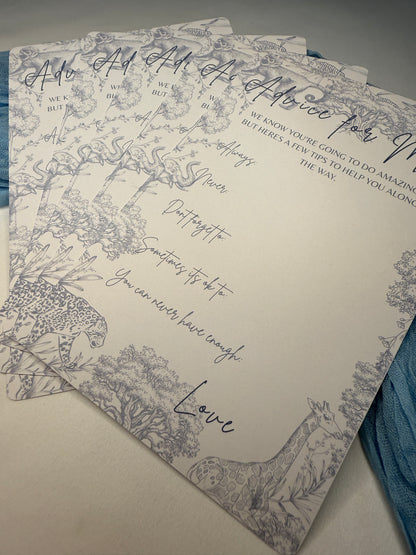 Adv
WE K
BUT
Ad
WE
BU
Adv
WE K
BUT
Ad
W
BU
Advice for M
WE KNOW YOU'RE GOING TO DO AMAZIN
BUT HERES A FEW TIPS TO HELP YOU ALONG
THE WAY.
Always:
Never:
Don't forget to:
Sometimes it's ok to:
You can never have enough:
Love